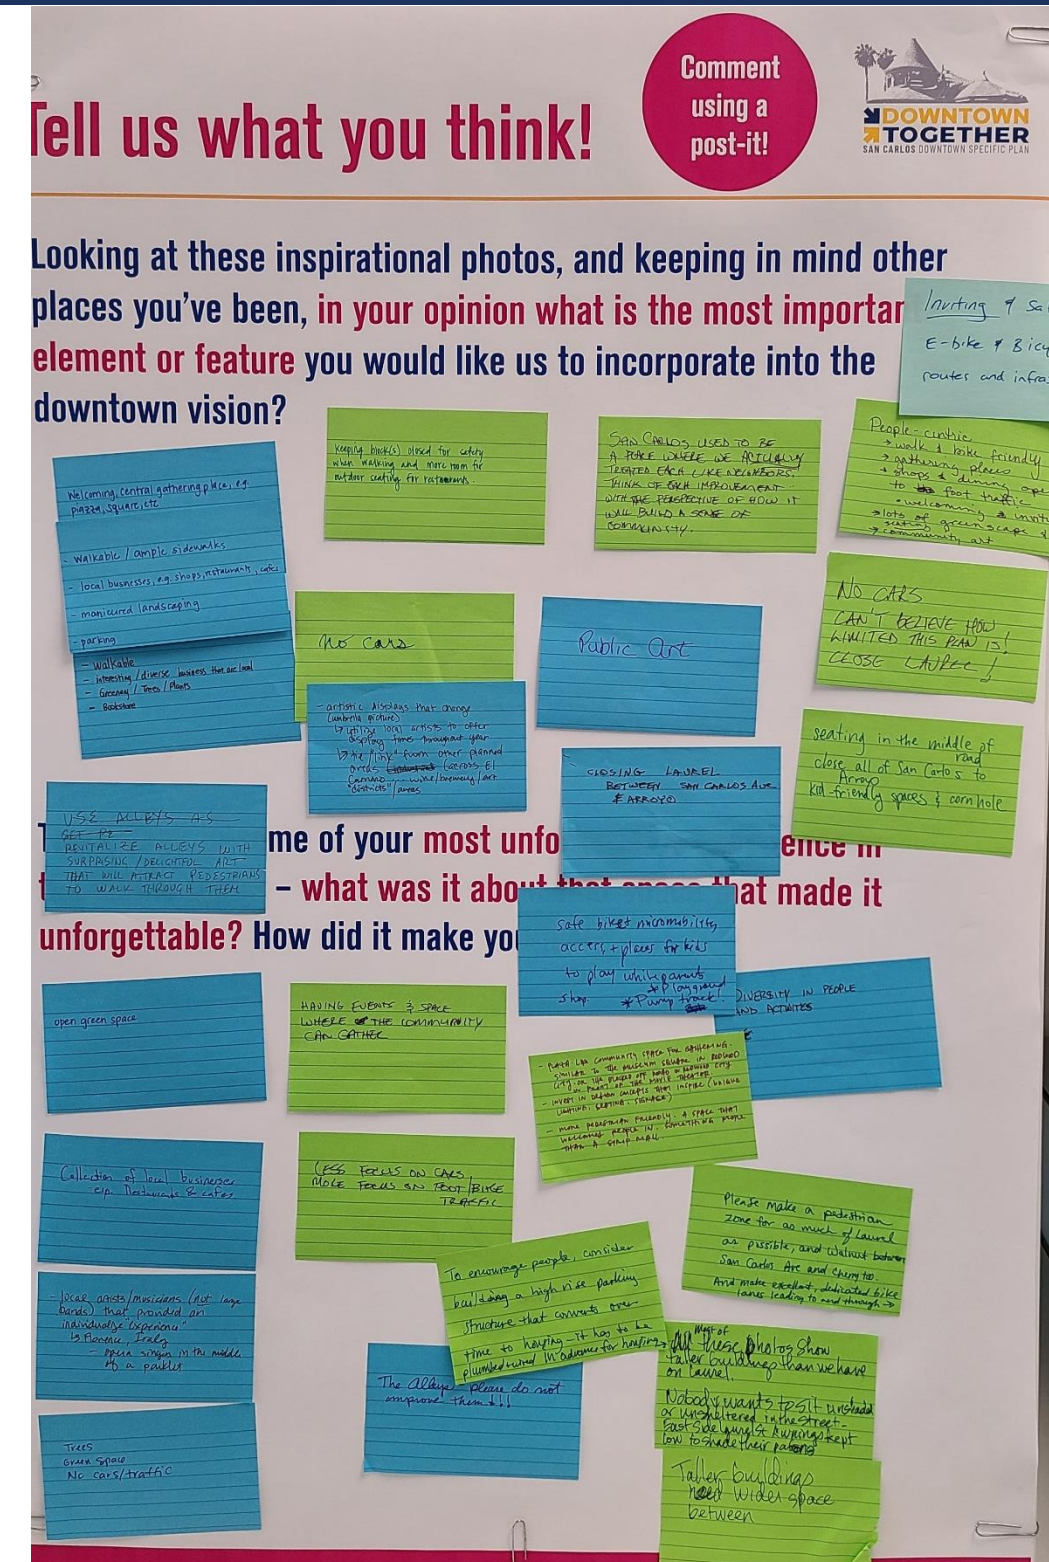 Tell us what you think!
Comment
using a
post-it!
DOWNTOWN
TOGETHER
SAN CARLOS DOWNTOWN SPECIFIC PLAN
Looking at these inspirational photos, and keeping in mind other
places you've been, in your opinion what is the most importan
element or feature you would like us to incorporate into the
downtown vision?
Inviting & Sa
E-bike & Bicy
routes and infras
Welcoming, central gathering place, e.g.
piazza, square, etc
- Walkable / ample sidewalks
- local businesses, e.g. shops, restaurants, cafes
- manicured landscaping
- parking
- Walkable
- interesting / diverse business that are local
- Greenery / Trees / Plants
- Bookstore
Keeping block(s) closed for safety
when walking and more room for
outdoor seating for restaurants.
SAN CARLOS USED TO BE
A PLACE WHERE WE ACTUALLY
TREATED EACH LIKE NEIGHBORS.
THINK OF EACH IMPROVEMENT
WITH THE PERSPECTIVE OF HOW IT
WILL BUILD A SENSE OF
COMMUNITY.
People-centric
→ walk & bike friendly
→ gathering places
→ shops & dining ope
to foot traffic
• welcoming & invit
→ lots of
seating greenscape &
→ community art
No cars
Public Art
NO CARS
CAN'T BELIEVE HOW
LIMITED THIS PLAN IS!
CLOSE LAUREL!
- artistic displays that change
(umbrella picture)
↳ utilize local artists to offer
display times throughout year
↳ tie/"link" from other planned
areas (across El
Camino - wine/brewery/art
"districts"/areas
CLOSING LAUREL
BETWEEN SAN CARLOS AVE
& ARROYO
seating in the middle of
road
close all of San Carlos to
Arroyo
kid-friendly spaces & cornhole
USE ALLEYS AS
REVITALIZE ALLEYS WITH
SURPRISING/DELIGHTFUL ART
THAT WILL ATTRACT PEDESTRIANS
TO WALK THROUGH THEM
T me of your most unfo ence in
t – what was it about that space that made it
unforgettable? How did it make you
safe bike + micromobility
access, + places for kids
to play while parents
shop. * Playground
* Pump track!
open green space
HAVING EVENTS & SPACE
WHERE THE COMMUNITY
CAN GATHER
DIVERSITY IN PEOPLE
AND ACTIVITIES
- PLAZA LIKE COMMUNITY SPACE FOR GATHERING.
SIMILAR TO THE MUSEUM SQUARE IN REDWOOD
CITY OR THE PLACES OFF REDWOOD CITY
IN FRONT OF THE MOVIE THEATER.
- INVEST IN DESIGN CONCEPTS THAT INSPIRE (UNIQUE
LIGHTING, SEATING, SIGNAGE)
- MORE PEDESTRIAN FRIENDLY. A SPACE THAT
WELCOMES PEOPLE IN. SOMETHING MORE
THAN A STRIP MALL.
Collection of local businesses
esp. Restaurants & cafes
LESS FOCUS ON CARS,
MORE FOCUS ON FOOT/BIKE
TRAFFIC
Please make a pedestrian
zone for as much of Laurel
as possible, and Walnut between
San Carlos Ave and Cherry too.
And make excellent, dedicated bike
lanes leading to and through →
To encourage people, consider
building a high rise parking
structure that converts over
time to housing - it has to be
plumbed + wired in advance for housing
- local artists/musicians (not large
bands) that provided an
individualize "experience"
↳ Florence, Italy
- opera singer in the middle
of a parklet
The Alleys - please do not
improve them!!!
Most of
All these photos show
taller buildings than we have
on Laurel.
Nobody wants to sit unshaded
or unsheltered in the street -
East side Laurel St Awnings kept
low to shade their patrons
Trees
Green space
No cars/traffic
Taller buildings
need wider space
between